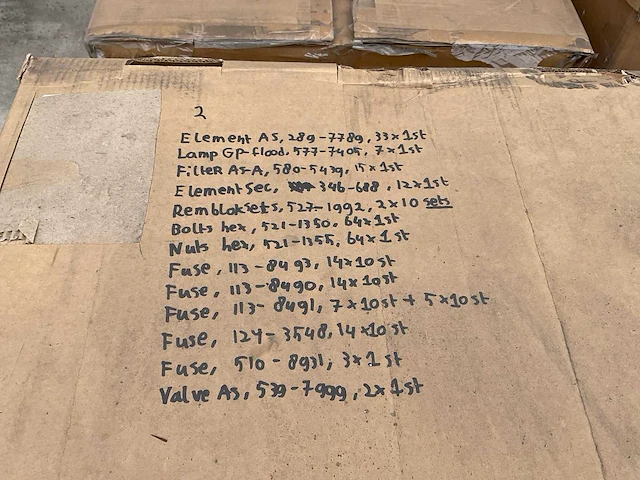 2
Element AS, 289-7789, 33x1st
Lamp GP-flood, 577-7405, 7x1st
Filter As-A, 580-5439, 15x1st
Element Sec, 346-688, 12x1st
Rembloksets, 527-1992, 2x10 sets
Bolts hex, 521-1350, 64x1st
Nuts hex, 521-1355, 64x1st
Fuse, 113-8493, 14x10st
Fuse, 113-8490, 14x10st
Fuse, 113-8491, 7x10st + 5x10st
Fuse, 124-3548, 14x10st
Fuse, 510-8931, 3x1st
Valve As, 539-7999, 2x1st